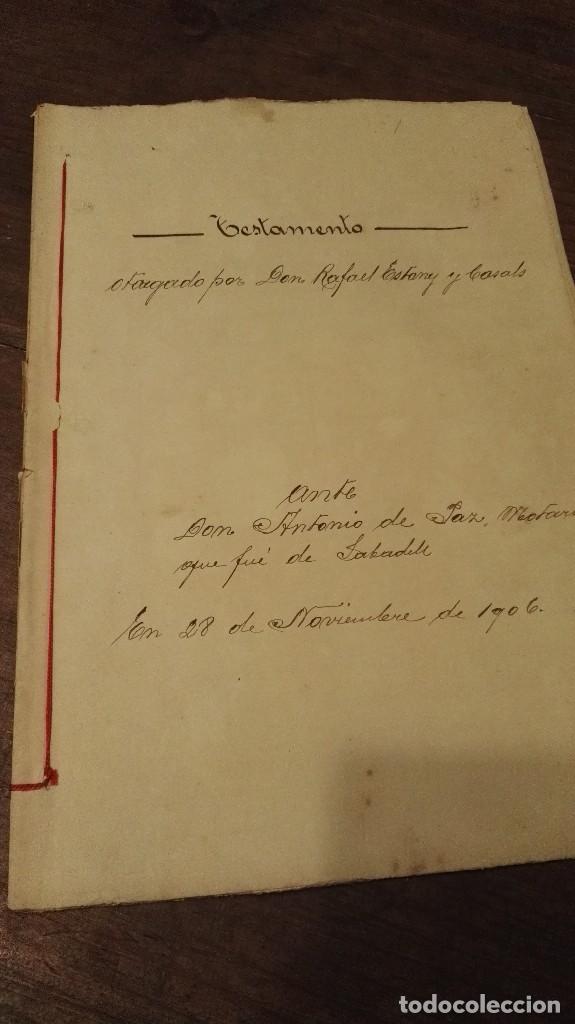 Testamento
otorgado por Don Rafael Estany y Casals
Ante
Don Antonio de Paz, Notari
que fué de Sabadell
En 28 de Noviembre de 1906.
todocoleccion